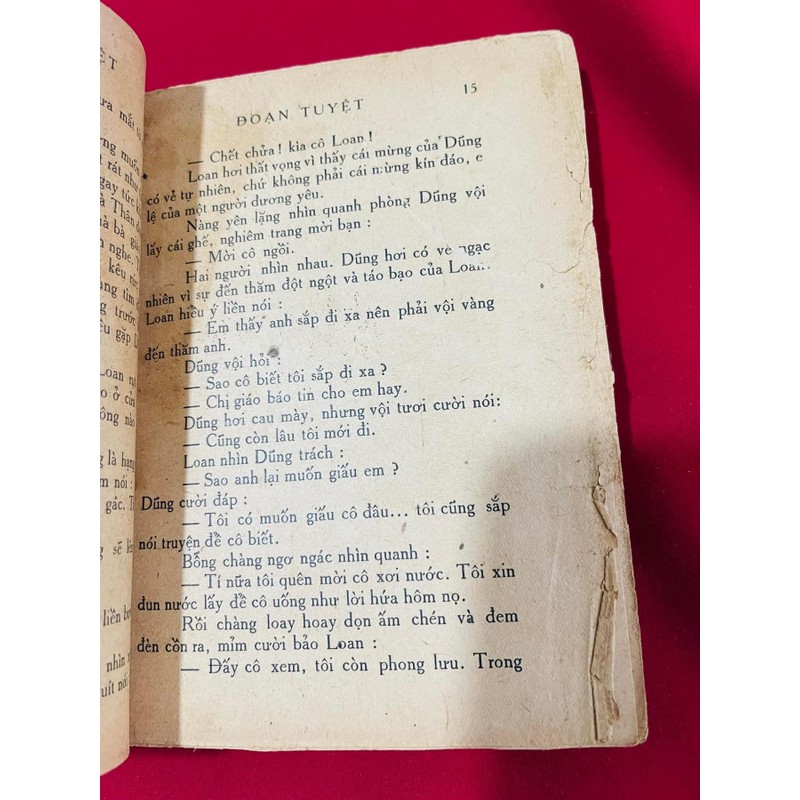 ĐOẠN TUYỆT 15
— Chết chửa! kìa cô Loan!
Loan hơi thất vọng vì thấy cái mừng của Dũng
có vẻ tự nhiên, chứ không phải cái mừng kín đáo, e
lệ của một người đương yêu.
Nàng yên lặng nhìn quanh phòng Dũng vội
lấy cái ghế, nghiêm trang mời bạn:
— Mời cô ngồi.
Hai người nhìn nhau. Dũng hơi có vẻ ngạc
nhiên vì sự đến thăm đột ngột và táo bạo của Loan.
Loan hiểu ý liền nói:
— Em thấy anh sắp đi xa nên phải vội vàng
đến thăm anh.
Dũng vội hỏi:
— Sao cô biết tôi sắp đi xa?
— Chị giáo báo tin cho em hay.
Dũng hơi cau mày, nhưng vội tươi cười nói:
— Cũng còn lâu tôi mới đi.
Loan nhìn Dũng trách:
— Sao anh lại muốn giấu em?
Dũng cười đáp:
— Tôi có muốn giấu cô đâu... tôi cũng sắp
nói truyện để cô biết.
Bỗng chàng ngơ ngác nhìn quanh:
— Tí nữa tôi quên mời cô xơi nước. Tôi xin
đun nước lấy để cô uống như lời hứa hôm nọ.
Rồi chàng loay hoay dọn ấm chén và đem
đèn cồn ra, mỉm cười bảo Loan:
— Đấy cô xem, tôi còn phong lưu. Trong